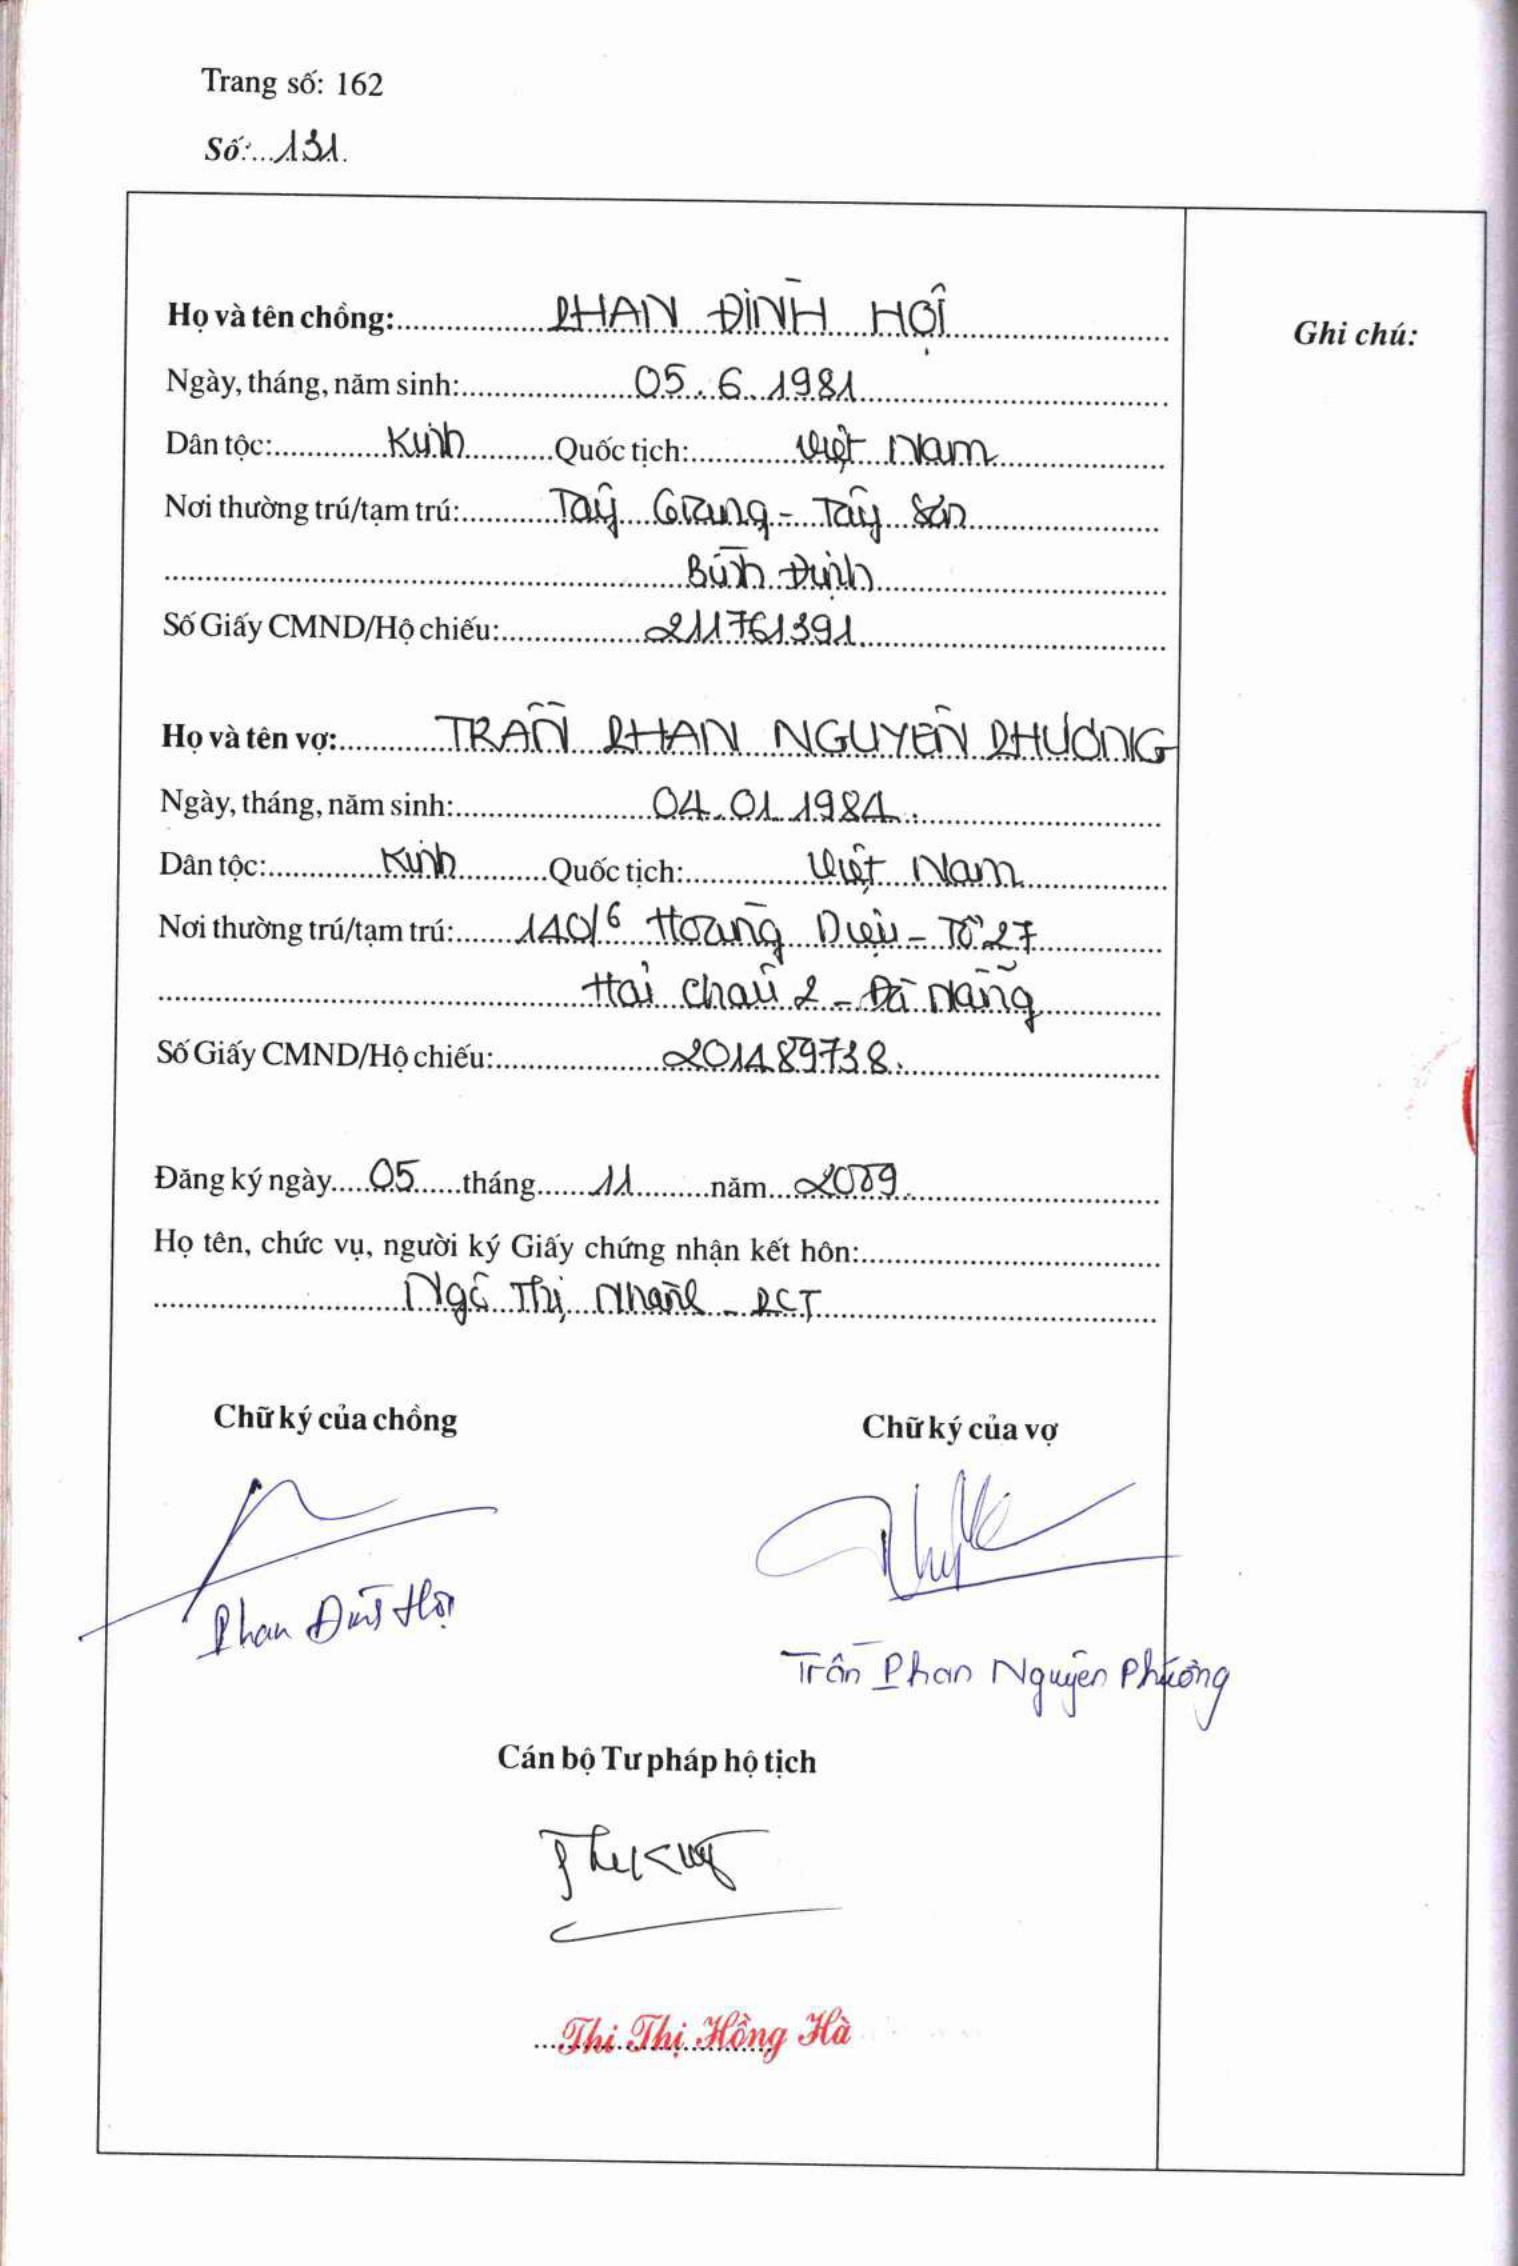 Trang số: 162
Số: 131.
Họ và tên chồng: PHAN ĐÌNH HỘI
Ghi chú:
Ngày, tháng, năm sinh: 05.6.1981
Dân tộc: Kinh Quốc tịch: Việt Nam
Nơi thường trú/tạm trú: Tây Giang - Tây Sơn
Bình Định
Số Giấy CMND/Hộ chiếu: 211761391
Họ và tên vợ: TRẦN PHAN NGUYÊN PHƯƠNG
Ngày, tháng, năm sinh: 04.01.1984.
Dân tộc: Kinh Quốc tịch: Việt Nam
Nơi thường trú/tạm trú: 140/6 Hoàng Diệu - Tổ 27
Hải Châu 2 - Đà Nẵng
Số Giấy CMND/Hộ chiếu: 201489738.
Đăng ký ngày 05 tháng 11 năm 2009.
Họ tên, chức vụ, người ký Giấy chứng nhận kết hôn:
Ngô Thị Nhành - PCT
Chữ ký của chồng
Chữ ký của vợ
Phan Đình Hội
Trần Phan Nguyên Phương
Cán bộ Tư pháp hộ tịch
Thi Thị Hồng Hà